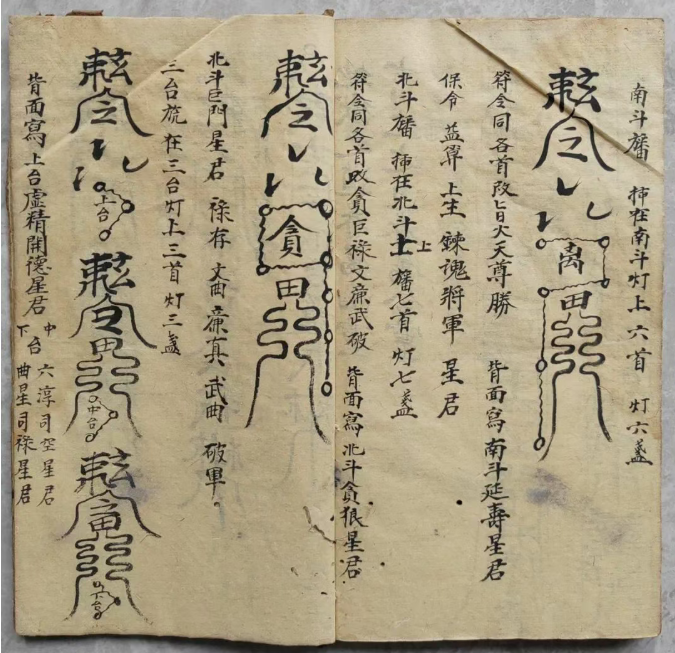 南斗旛 插在南斗灯上六首 灯六盏
敕令
离
田
符令同各首改旨火天尊勝 背面寫南斗延壽星君
保令 益算 上生 鍊魂將軍 星君
北斗旛 插在北斗上 旛七首 灯七盏
符令同各首改貪巨祿文廉武破 背面寫北斗貪狼星君
敕令
貪
田
北斗巨門星君 祿存 文曲 廉真 武曲 破軍
三台旒 在三台灯上三首 灯三盏
敕令
上台
敕令
田
中台
敕
下台
背面寫上台虛精開德星君
中台六淳司空星君
下 曲星司祿星君